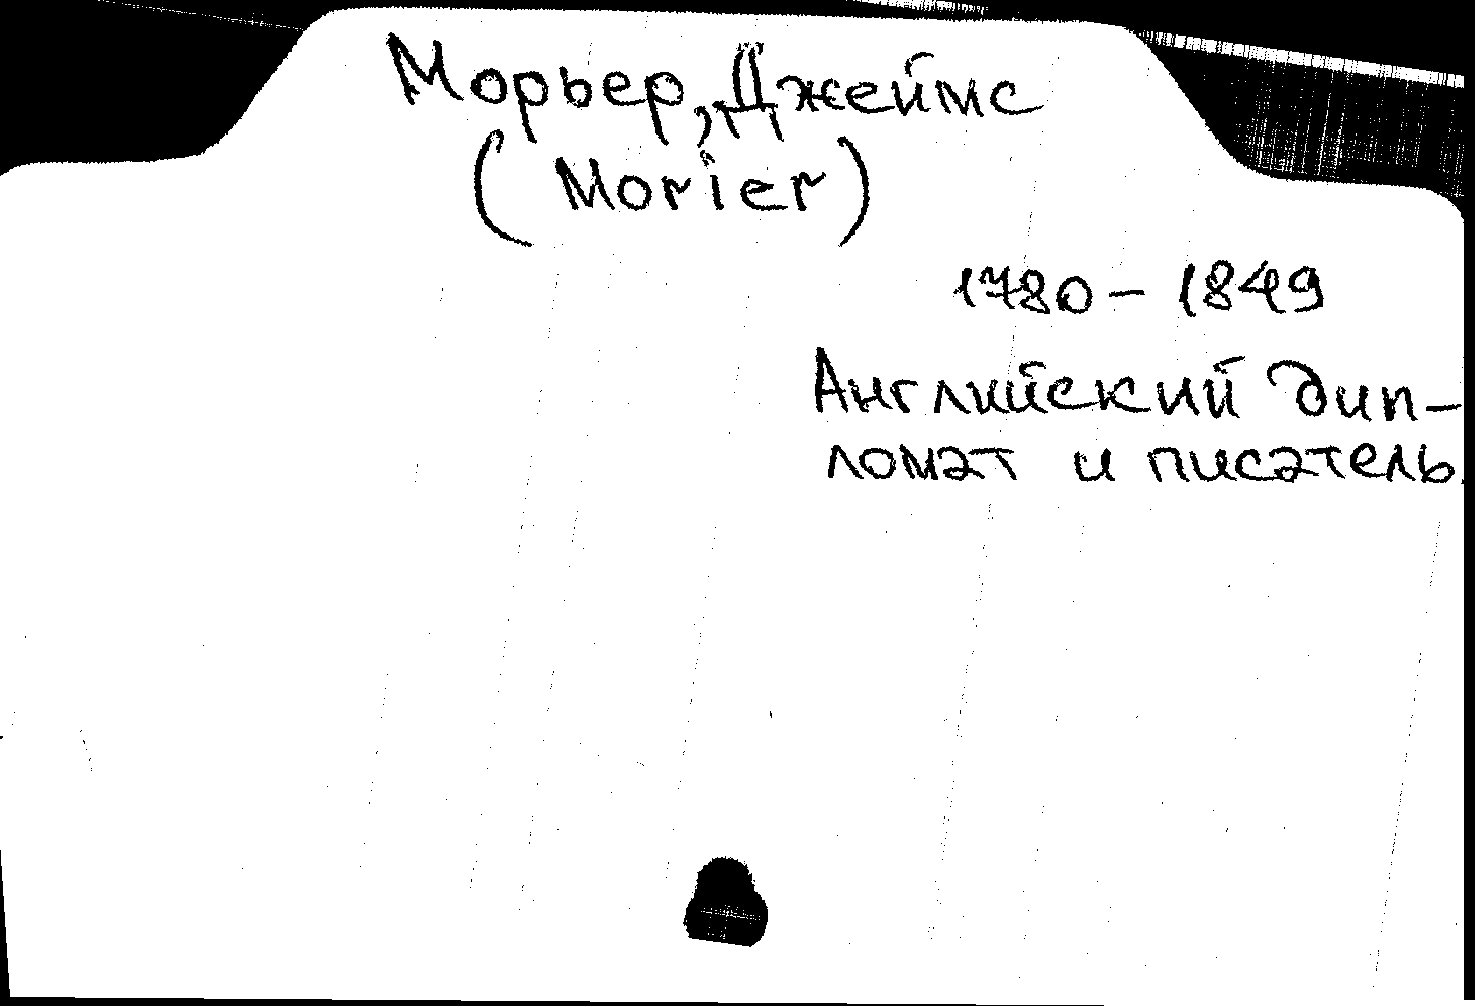 Морьер, Джеймс
(Morier)
1780 – 1849
Английский дип-
ломат и писатель.